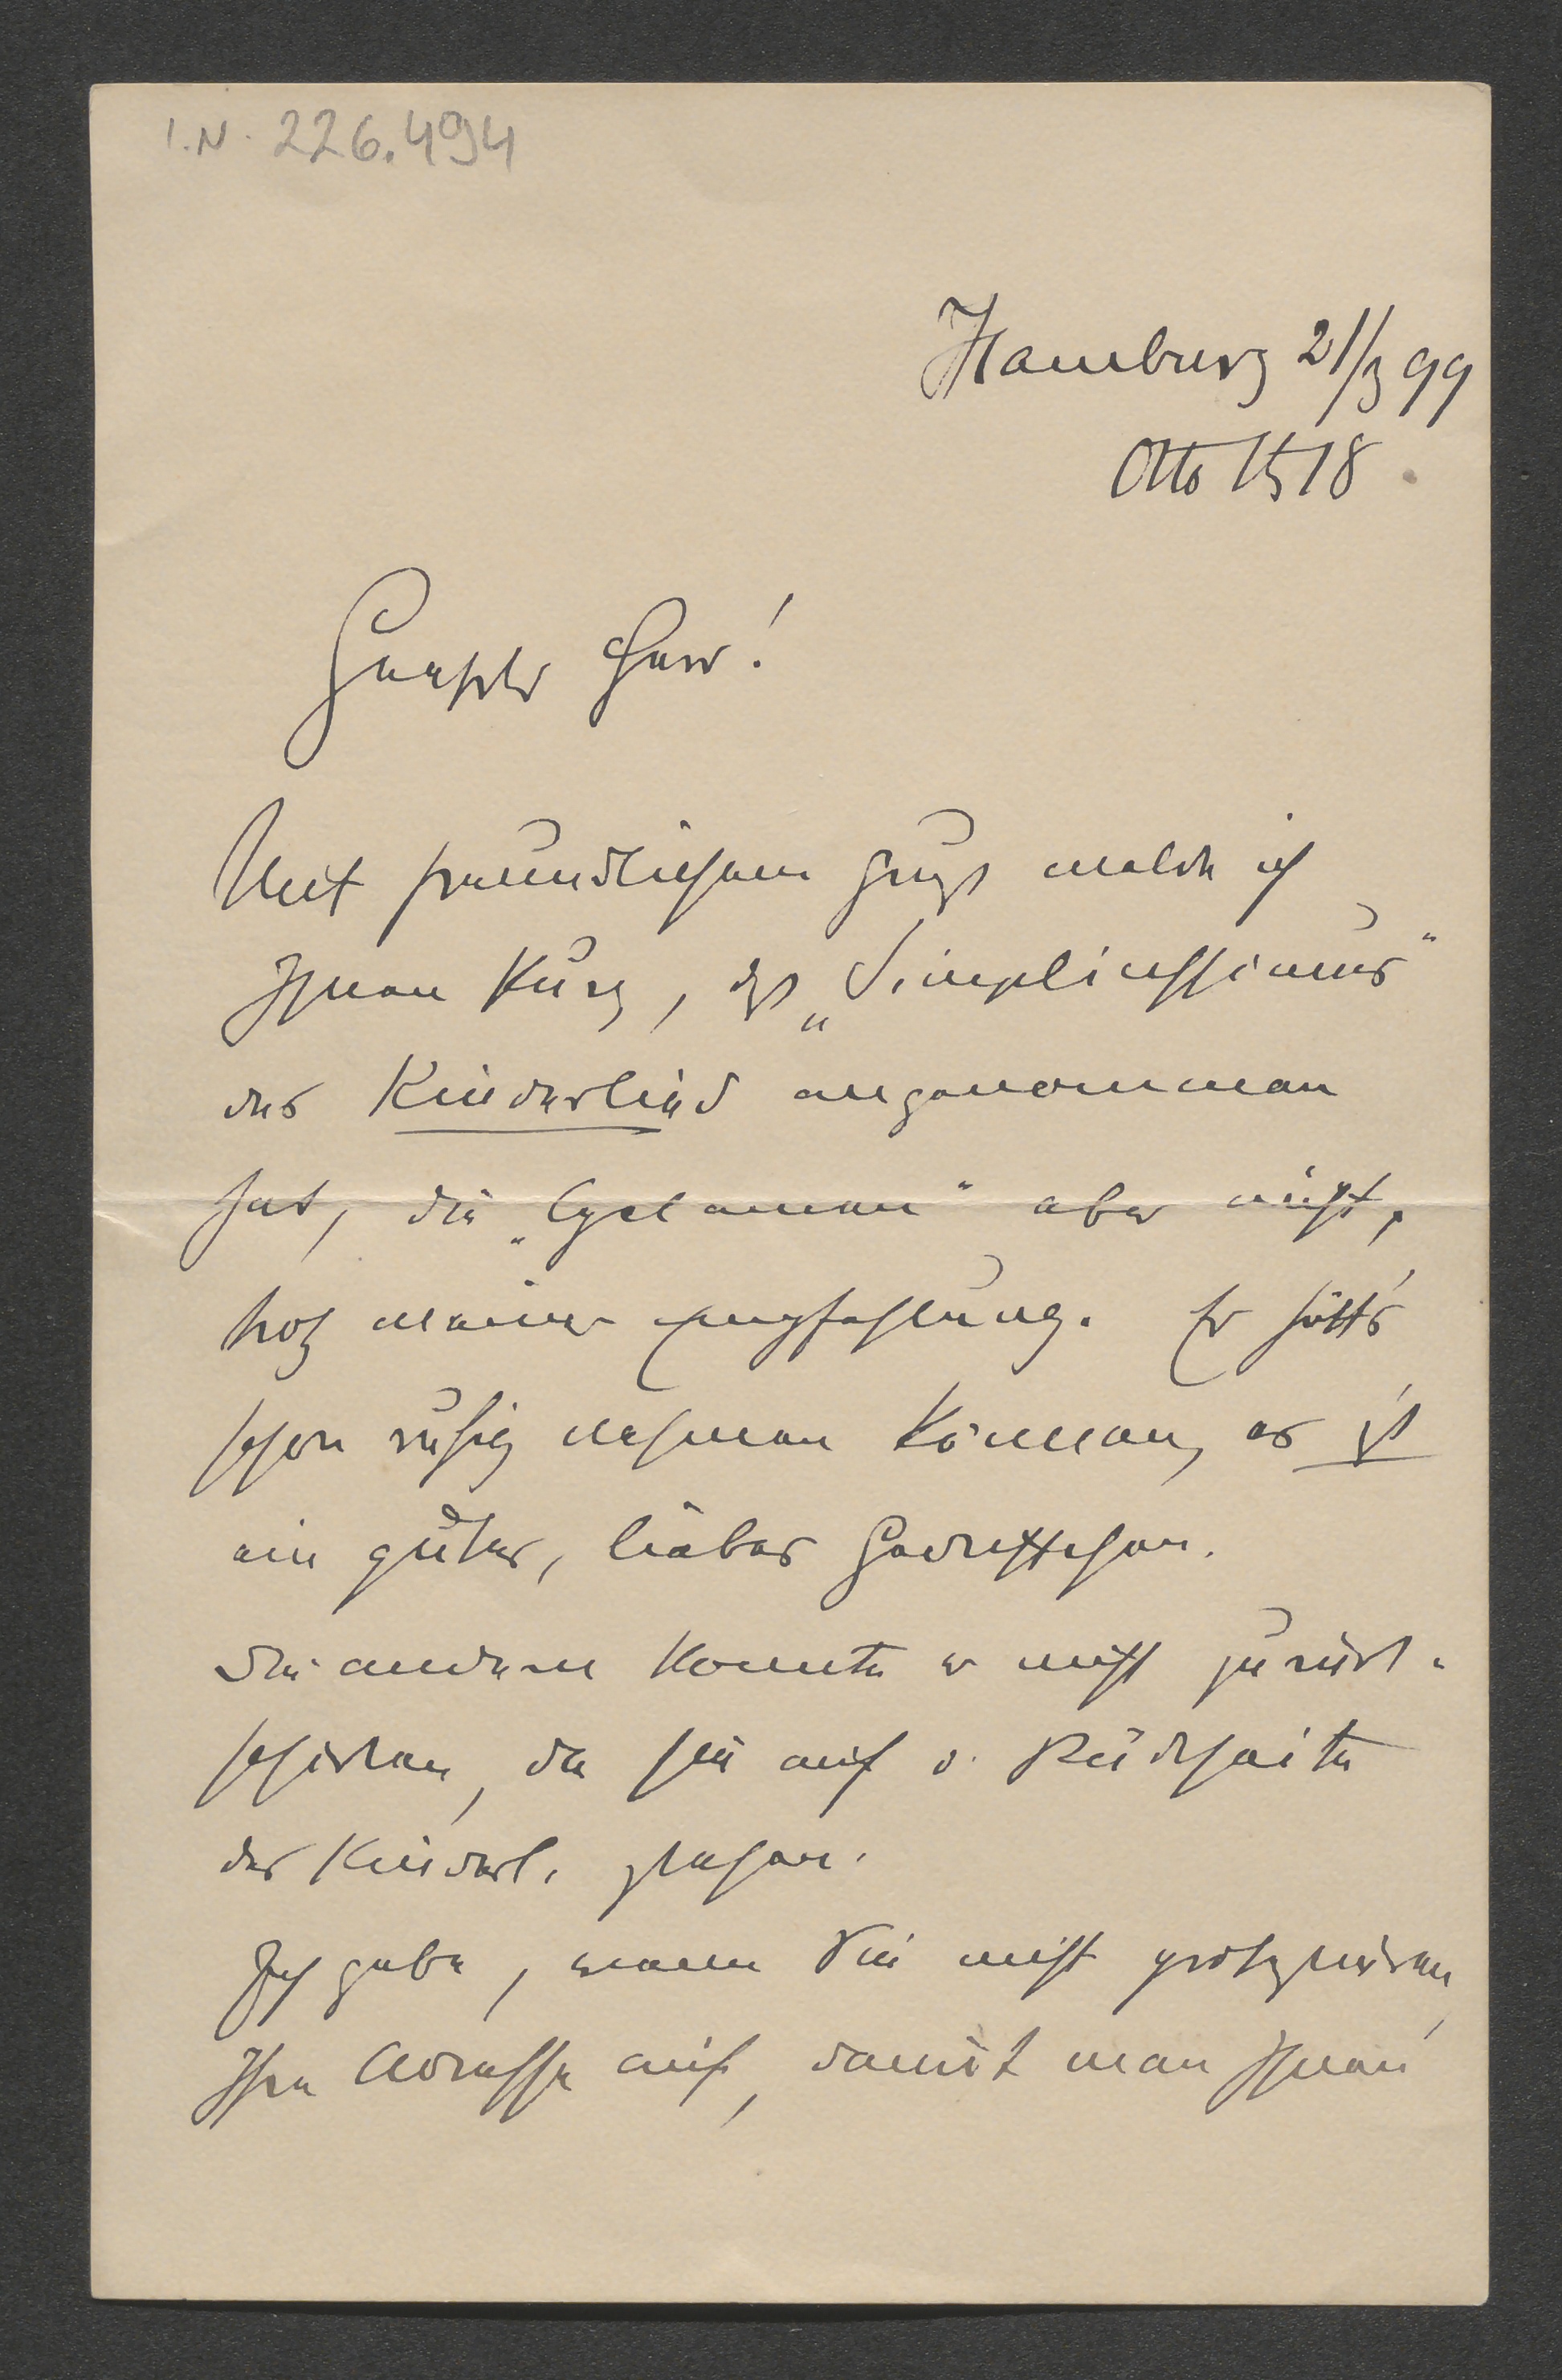 I.N. 226.494
Hamburg 21/3 99
Otto Str 18.
Geehrter Herr!
Mit freundlichem Gruß melde ich
Ihnen kurz, dß „Simplicissimus“
das Kinderlied angenommen
hat, die „Cyclamen“ aber nicht,
trotz meiner Empfehlung. Er hätt's
schon ruhig nehmen können, es ist
ein gutes, liebes Gedichtchen.
Die andern konnte er nicht zurück-
schicken, da sie auf d. Rückseite
des Kinderl. stehen.
Ich gebe, wenn Sie nicht protestieren,
Ihre Adresse auf, damit man Ihnen